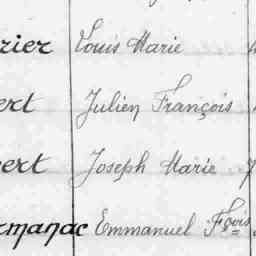 rier Louis Marie
ert Julien François
vert Joseph Marie
rmanac Emmanuel Fçois